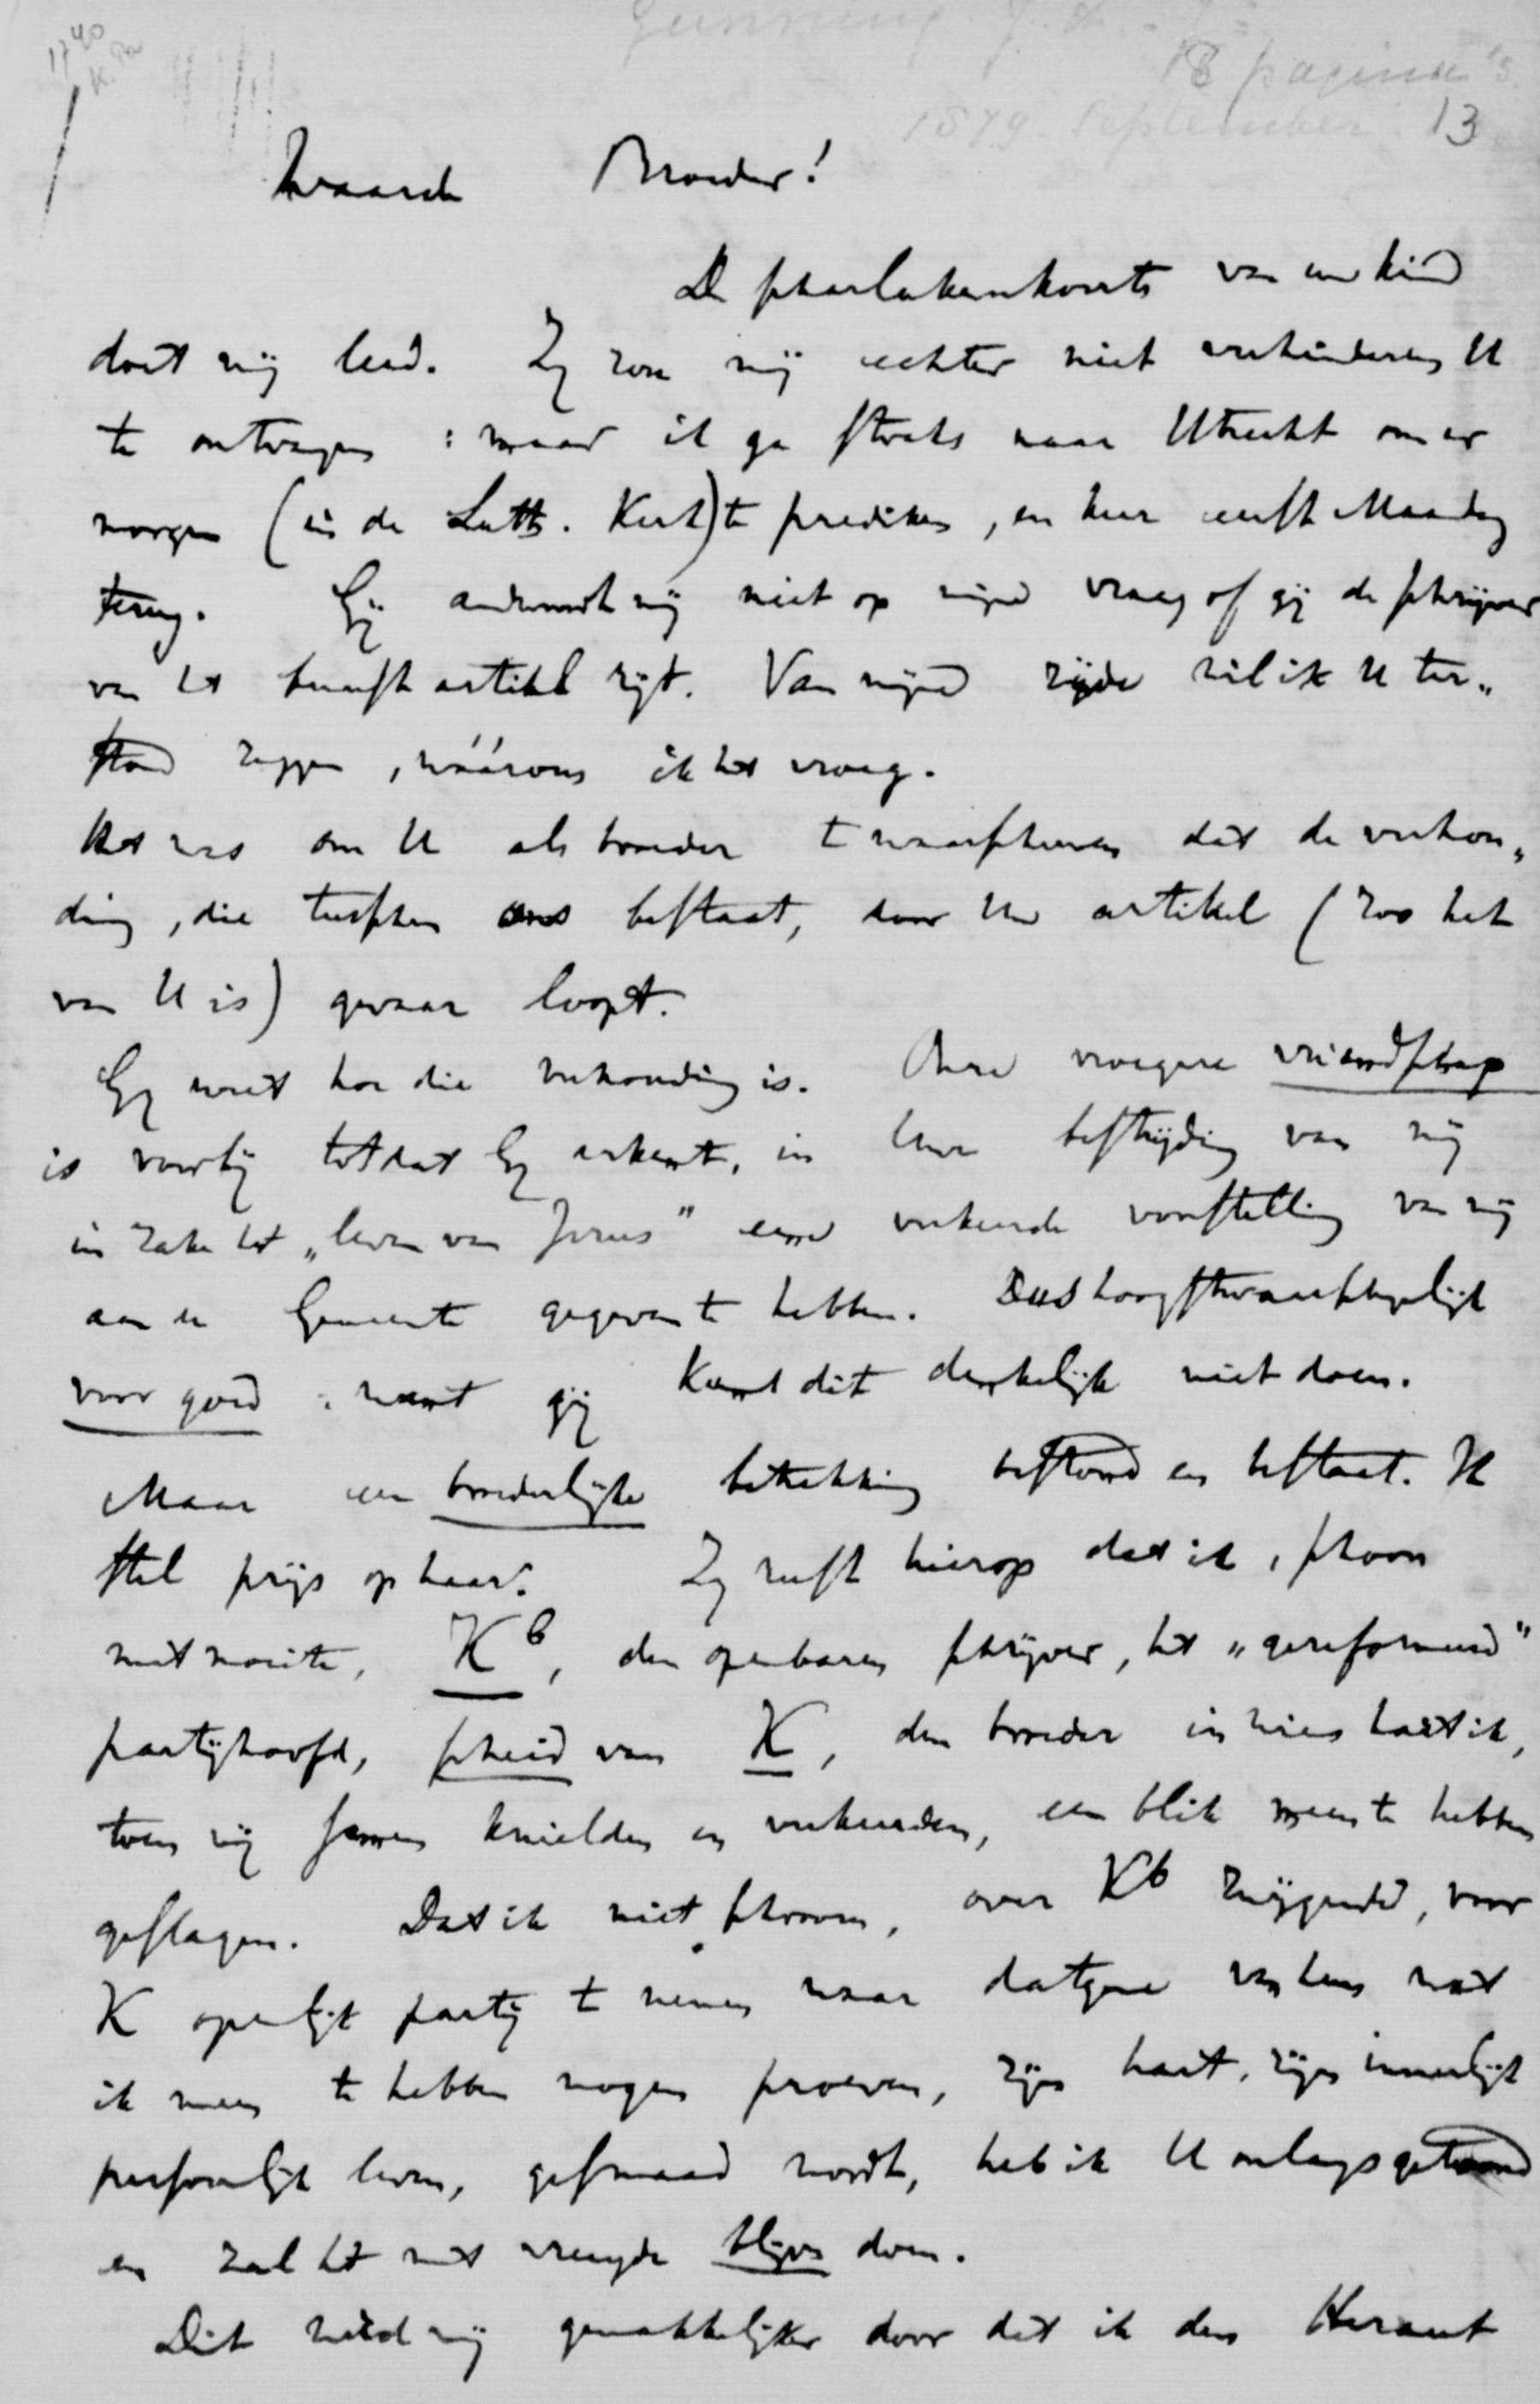 Gunning J. H.
1740
K. Pa
18 pagina's
1879. September. 13
Waarde Broeder!
De scharlakenkoorts van uw kind
doet mij leed. Zij zou mij echter niet verhinderen U
te ontvangen: maar ik ga straks naar Utrecht om er
morgen (in de Luth. Kerk) te prediken, en keer eerst Maandag
terug. Gij antwoordt mij niet op mijne vraag of gij de schrijver
van het bewuste artikel zijt. Van mijne zijde wil ik U ter„
stond zeggen, wáárom ik het vroeg.
Het was om U als broeder te waarschuwen dat de verhou„
ding, die tusschen ons bestaat, door Uw artikel (zoo het
van U is) gevaar loopt.
Gij weet hoe die verhouding is. Onze vroegere vriendschap
is voorbij totdat Gij erkent, in Uwe bestrijding van mij
in zake het „leven van Jezus" eene verkeerde voorstelling van mij
aan de Gemeente gegeven te hebben. Dus hoogstwaarschijnlijk
voor goed: want gij kunt dit denkelijk niet doen.
Maar een broederlijke betrekking bestond en bestaat. Ik
stel prijs op haar. Zij rust hierop dat ik, schoon
met moeite, K^b, den openbaren schrijver, het „gereformeerd"
partijhoofd, scheid van K, den broeder in wiens hart ik,
toen wij samen knielden en verkeerden, een blik meen te hebben
geslagen. Dat ik niet schroom, over K^b zwijgende, voor
K openlijk partij te nemen waar datgene van hem wat
ik meen te hebben mogen proeven, zijn hart, zijn innerlijk
persoonlijk leven, gesmaad wordt, heb ik U onlangs getoond
en zal het met vreugde blijven doen.
Dit werd mij gemakkelijker door dat ik den Heraut